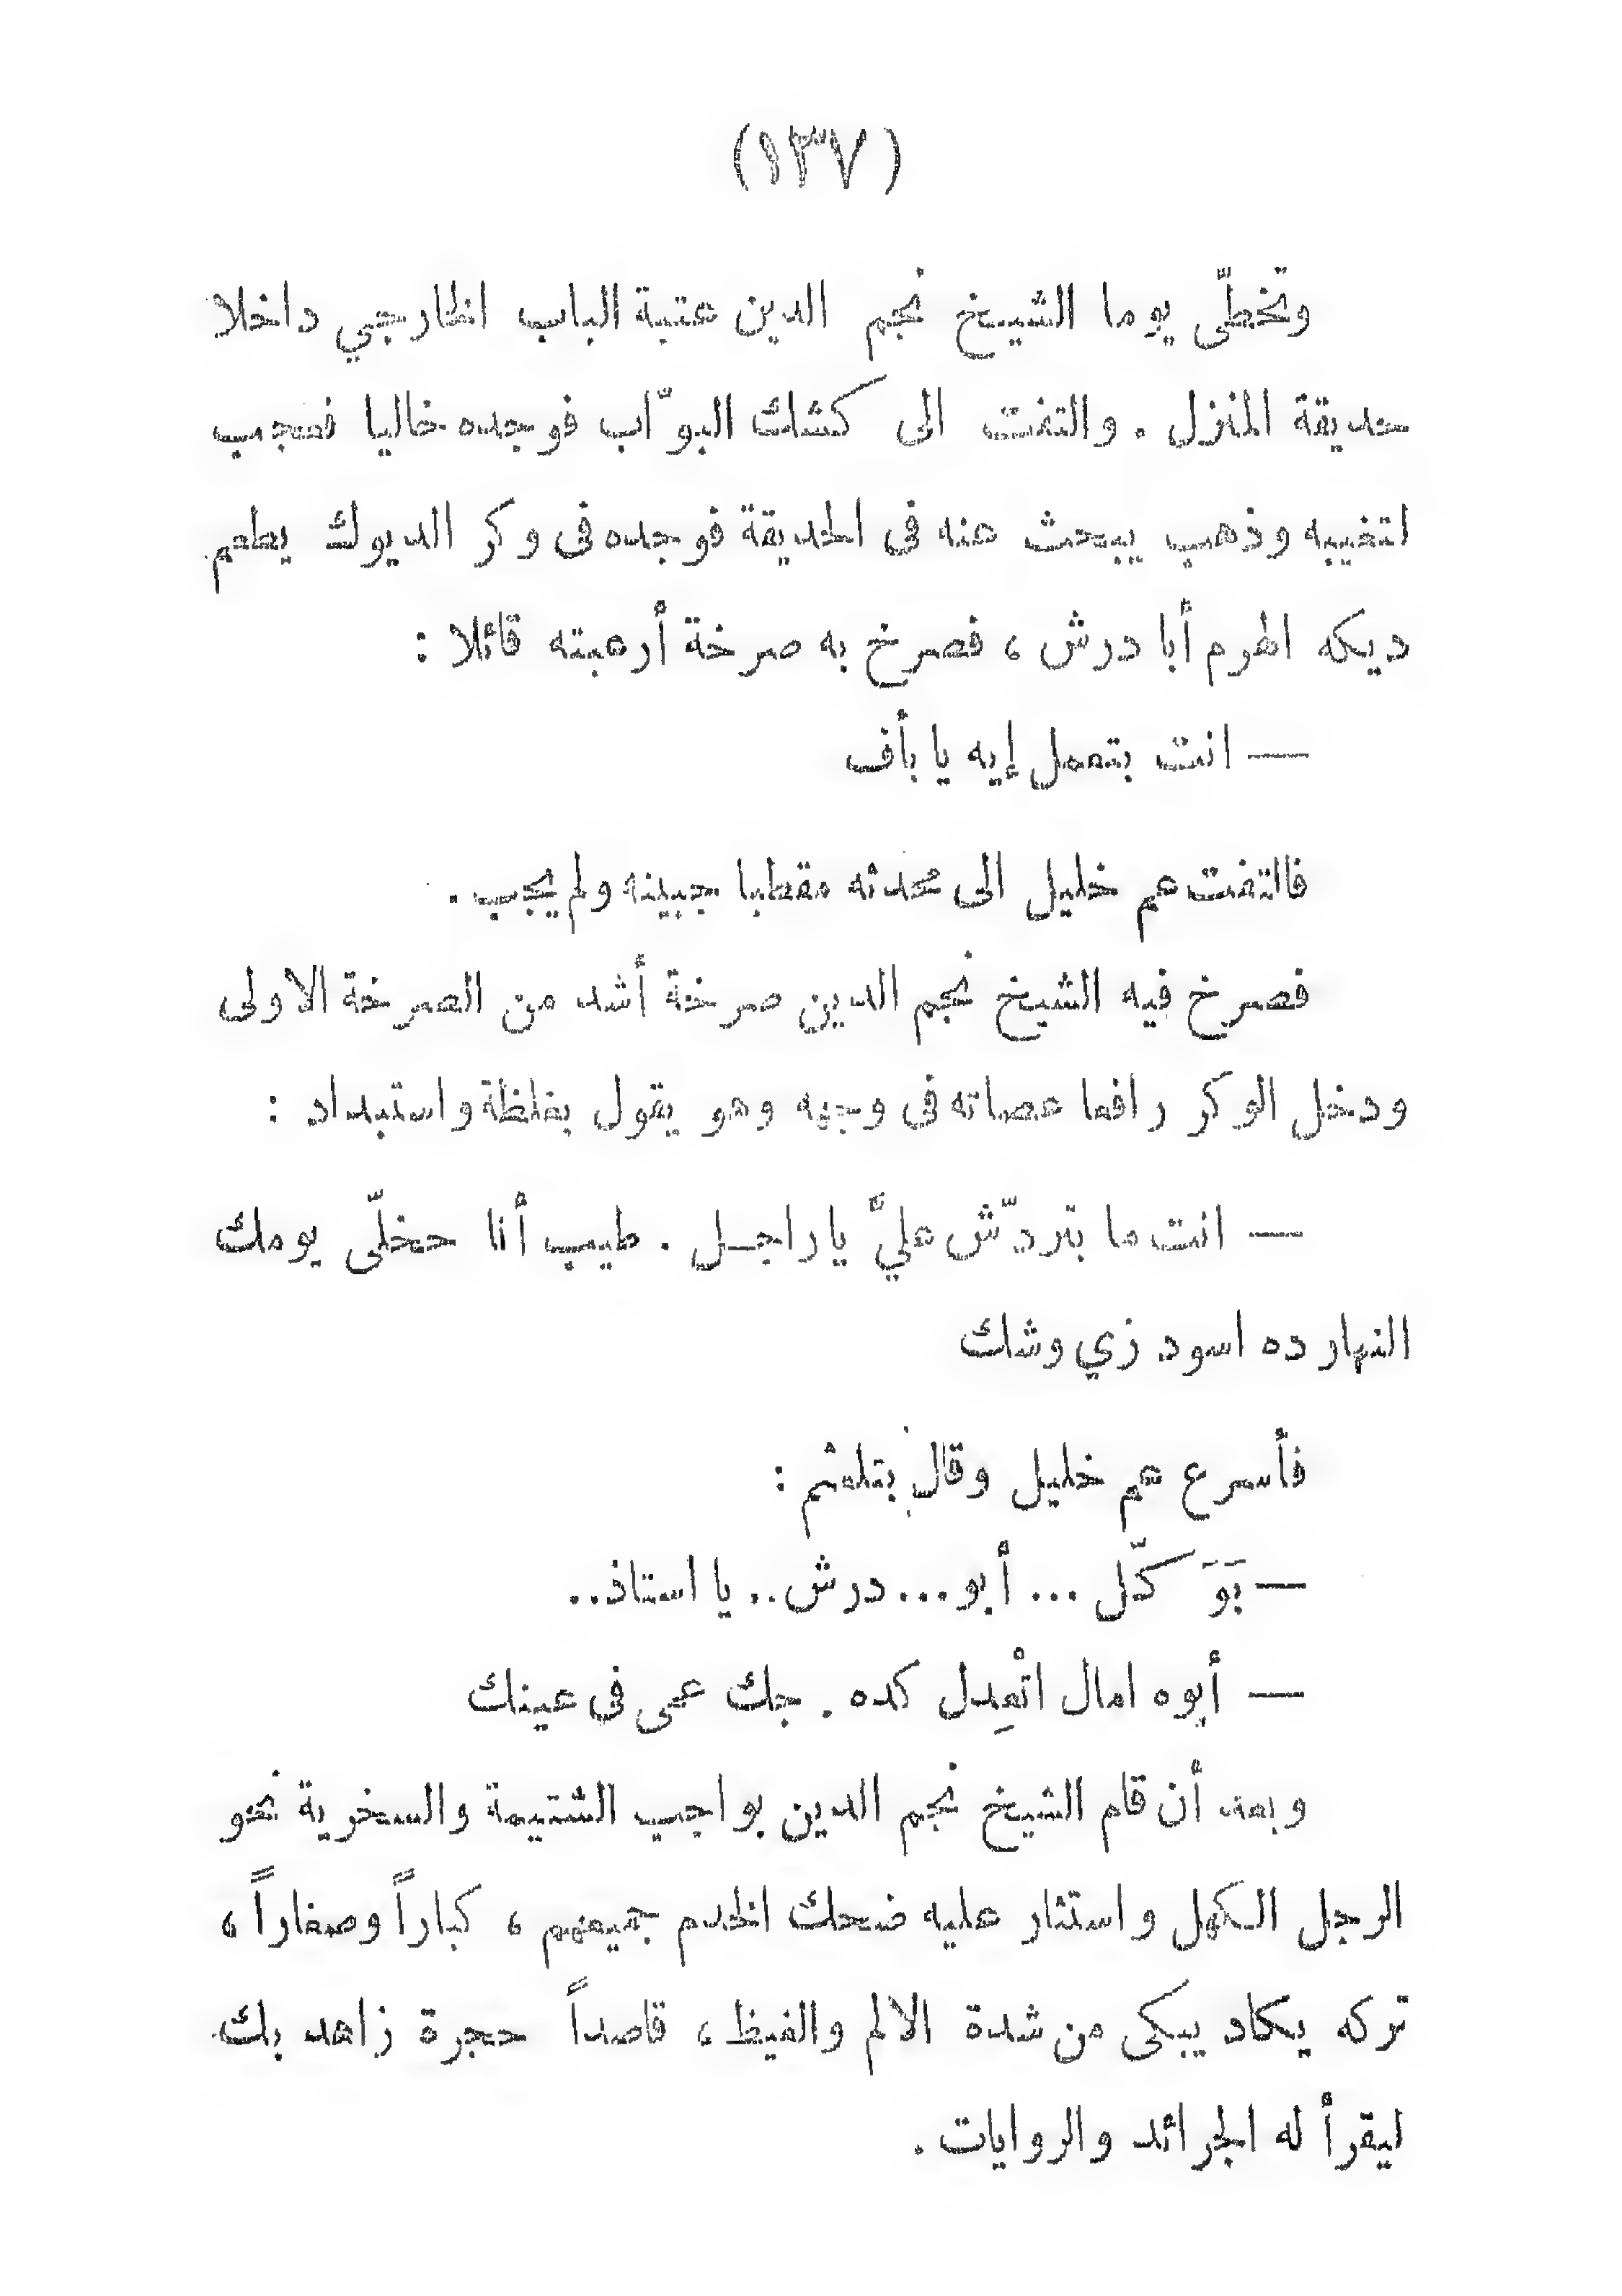 (١٣٧)
وتخطّى يوما الشيخ نجم الدين عتبة الباب الخارجي داخلا
حديقة المنزل . والتفت الى كشك البوّاب فوجده خاليا فعجب
لتغيبه وذهب يبحث عنه فى الحديقة فوجده فى وكر الديوك يطعم
ديكه الهرم أبا درش ، فصرخ به صرخة أرعبته قائلا :
— انت بتعمل إيه يا بأف
فالتفت عم خليل الى محدثه مقطبا جبينه ولم يجب .
فصرخ فيه الشيخ نجم الدين صرخة أشد من الصرخة الاولى
ودخل الوكر رافعا عصاته فى وجهه وهو يقول بغلظة واستبداد :
— انت ما بتردّش عليَّ يا راجل . طيب أنا حخلّى يومك
النهار ده اسود زي وشك
فأسرع عم خليل وقال بتلعثم :
— بَوَ كّل ... أبو ... درش .. يا استاذ ..
— أيوه امال اتْعِدل كده . جك عمى فى عينك
وبعد أن قام الشيخ نجم الدين بواجب الشتيمة والسخرية نحو
الرجل الكهل واستثار عليه ضحك الخدم جميعهم ، كباراً وصغاراً ،
تركه يكاد يبكى من شدة الالم والغيظ ، قاصداً حجرة زاهد بك
ليقرأ له الجرائد والروايات .